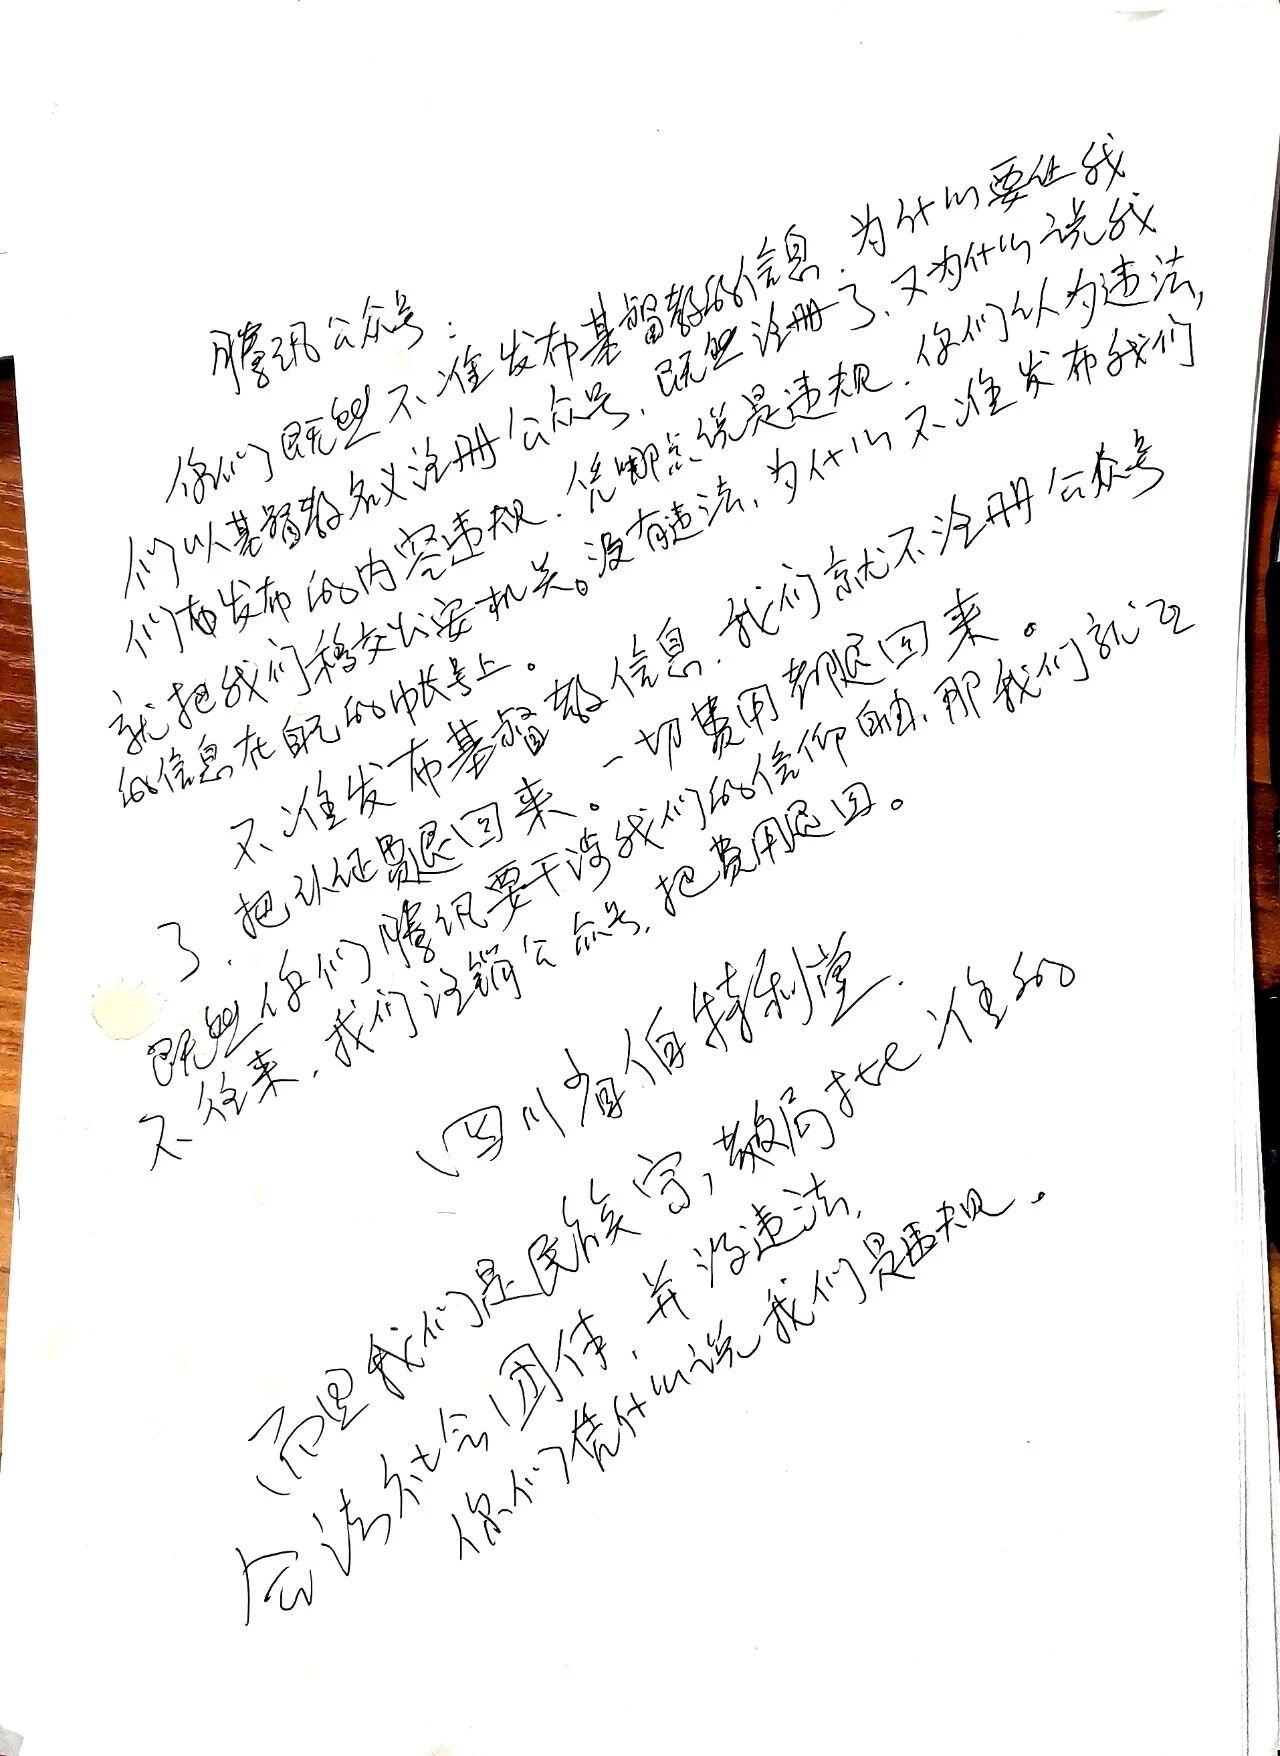 腾讯公众号:
你们既然不准发布基督教的信息,为什么要让我
们以基督教名义注册公众号,既然注册了,又为什么说我
们布发布的内容违规,凭哪点说是违规,你们认为违法,
就把我们移交公安机关。没有违法,为什么不准发布我们
的信息在自己的帐号上。
不准发布基督教信息,我们就不注册公众号
了,把认证费退回来。一切费用都退回来。
既然你们腾讯要干涉我们的信仰自由,那我们就互
不往来,我们注销公众号,把费用退回。
(四川省伯特利堂.
(而且我们是民族宗教局批准的
合法社会团体,并没违法,
你们凭什么说我们是违规.